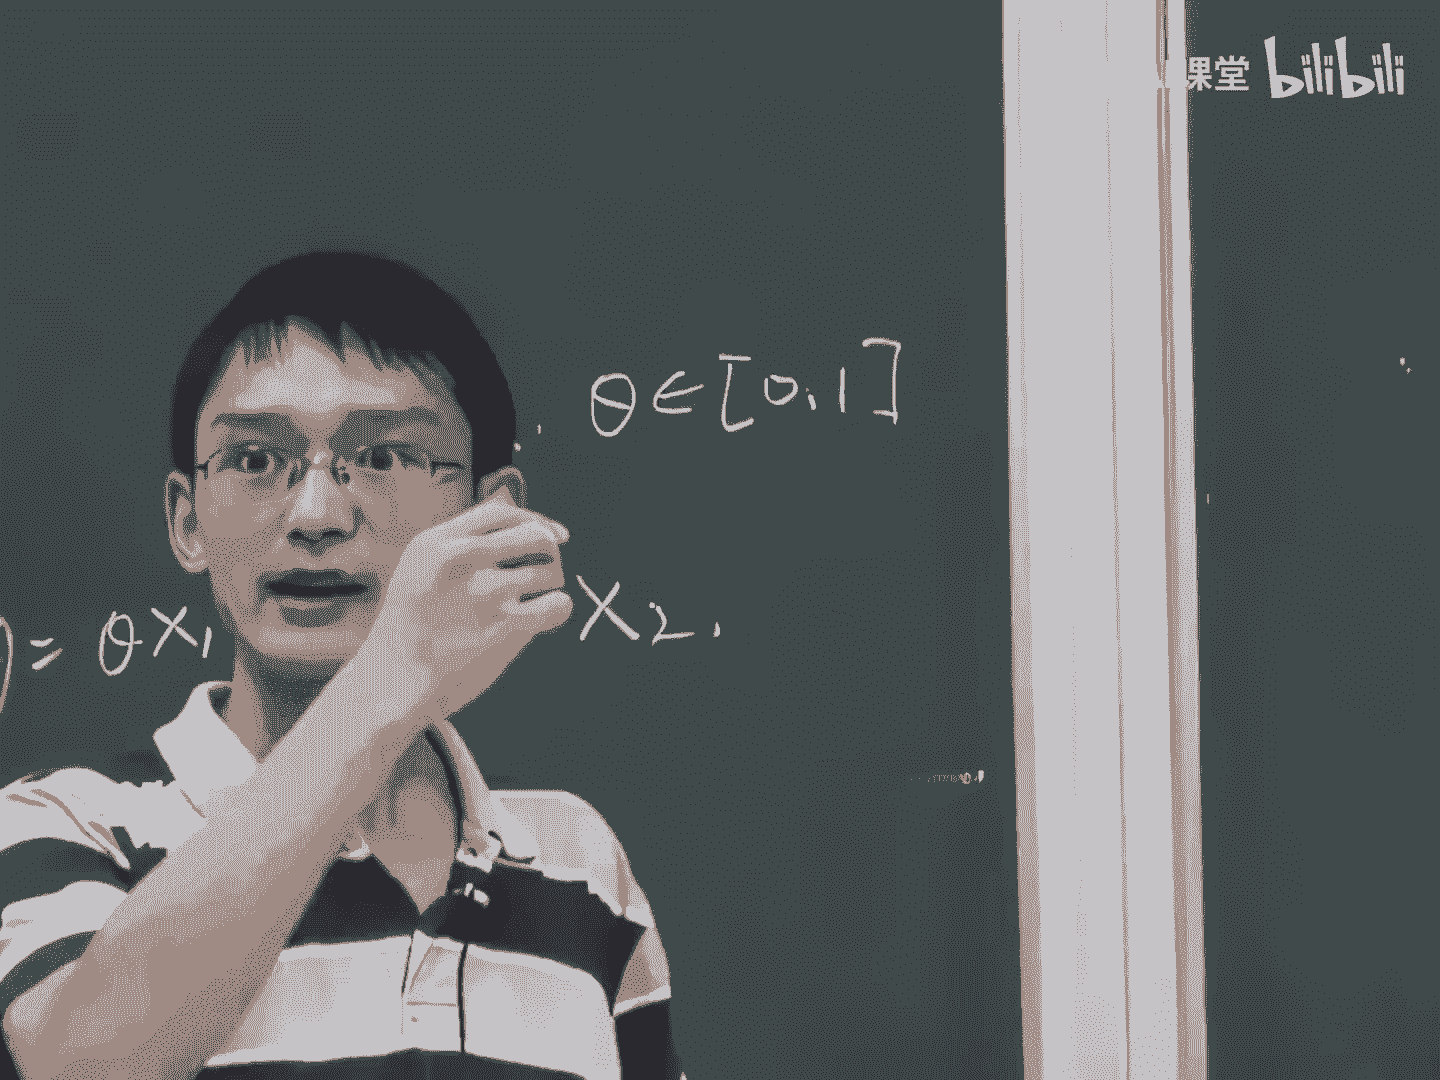 课堂 bilibili
θ∈[0,1]
)= θx₁ x₂.